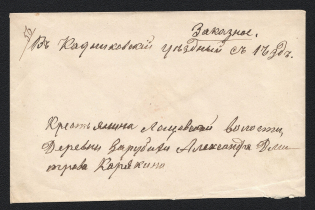 Заказное.
Въ Кадниковскій уѣздный съѣздъ.
Крестьянина Лещевской волости,
Деревни Зарубихи Александра Дми
трова Карякина